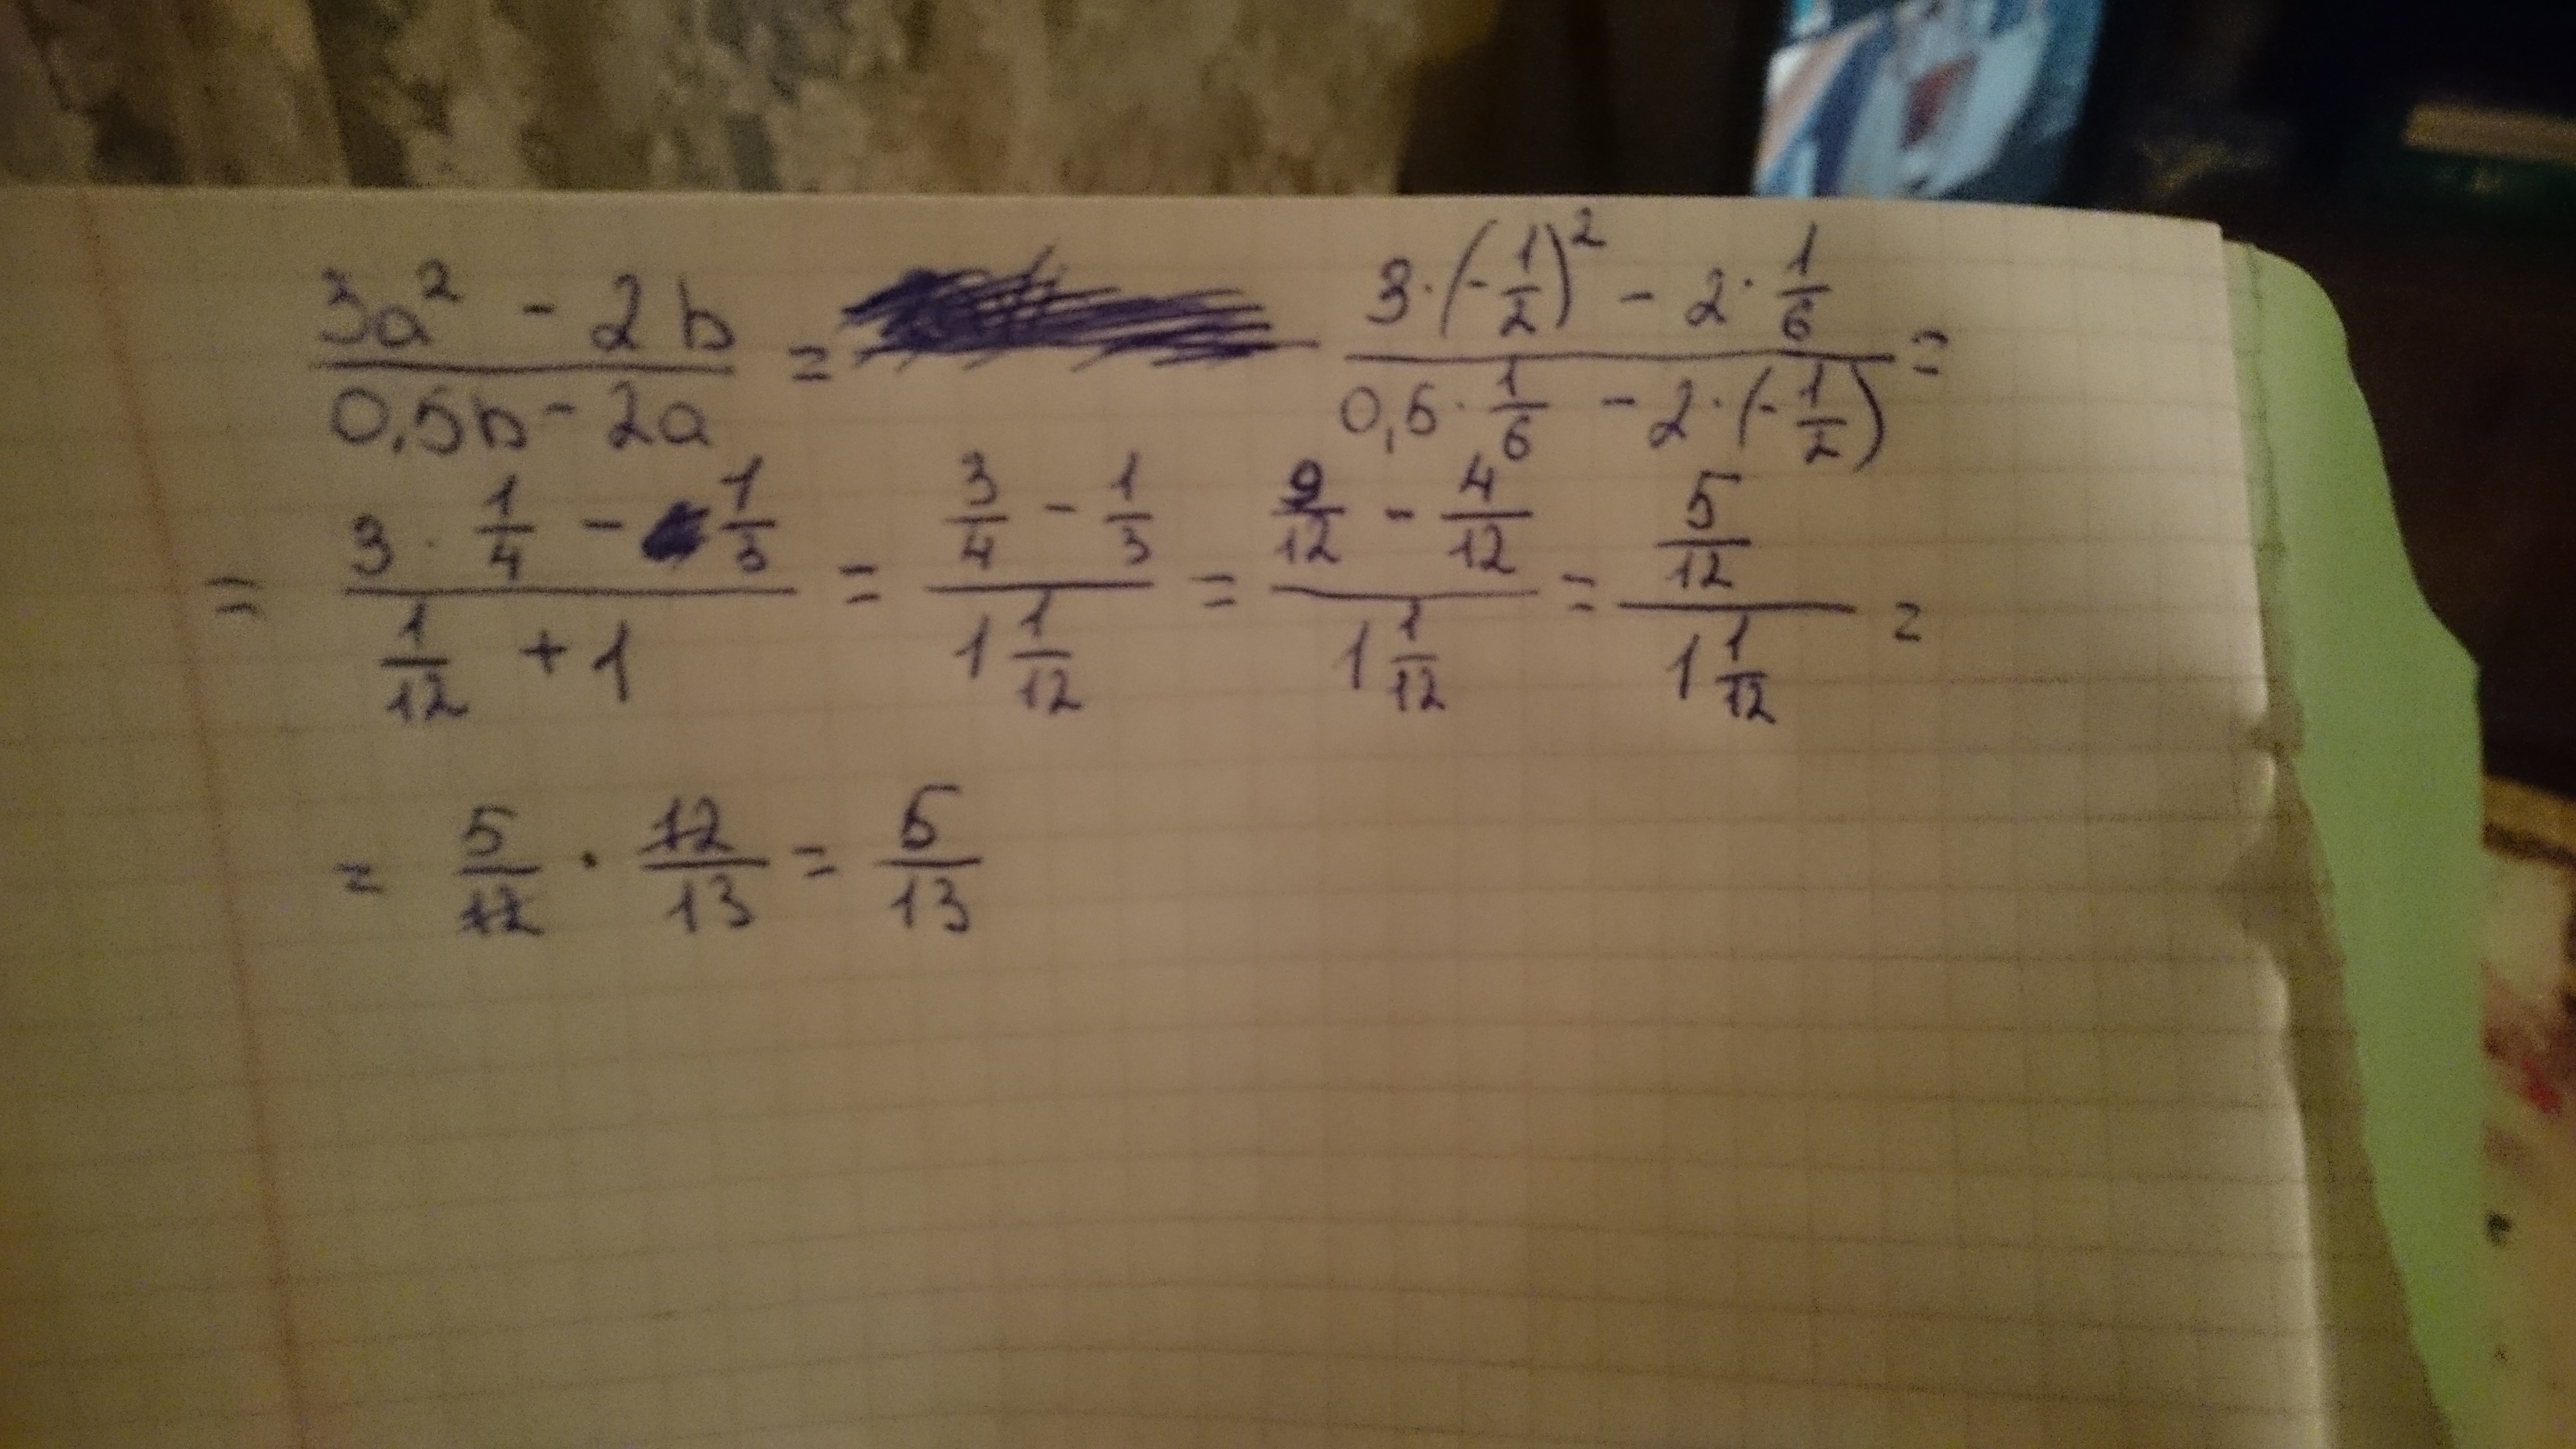 (3a² - 2b)/(0,5b - 2a) = (3·(-1/2)² - 2·1/6)/(0,5·1/6 - 2·(-1/2)) =
= (3·1/4 - 1/3)/(1/12 + 1) = (3/4 - 1/3)/(1 1/12) = (9/12 - 4/12)/(1 1/12) = (5/12)/(1 1/12) =
= 5/12 · 12/13 = 5/13